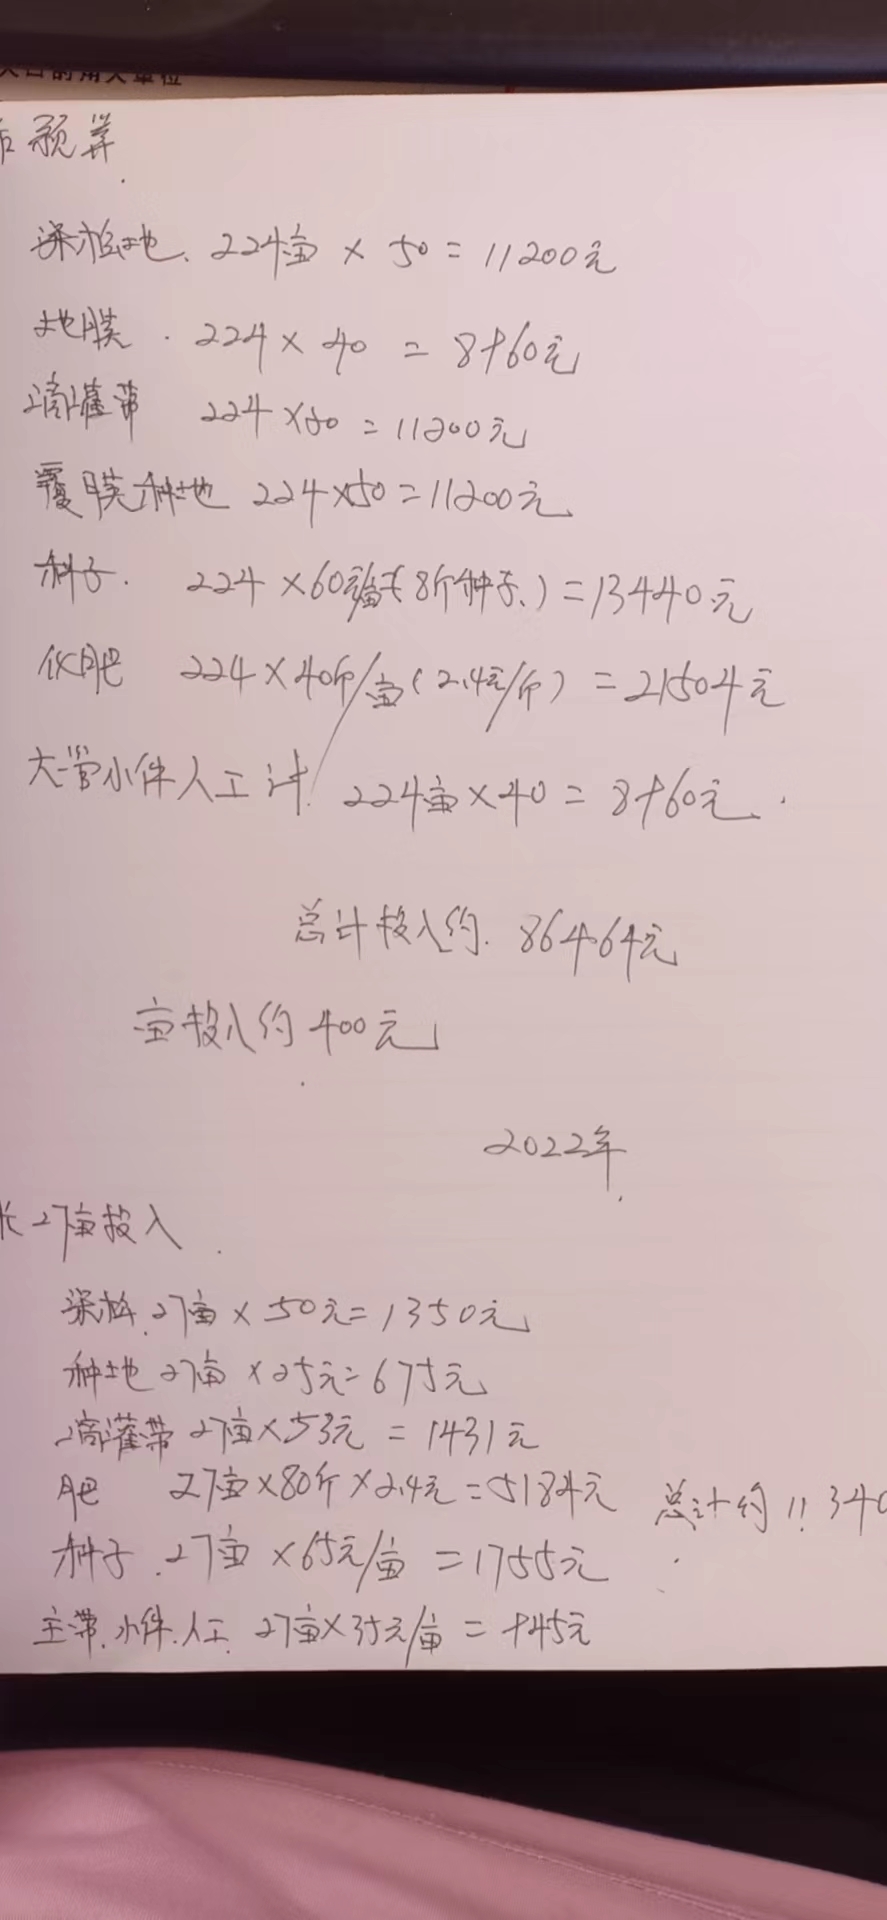 预算
深松地. 224亩 × 50 = 11200元
地膜. 224 × 40 = 8960元
滴灌带 224 × 50 = 11200元
覆膜种地 224×50=11200元
种子. 224 ×60元/亩(8斤种子.)=13440元
化肥 224×40斤/亩(2.4元/斤) = 21504元
大管小件人工计. 224亩×40 = 8960元.
总计投入约. 86464元
亩投入约400元
2022年
27亩投入
深松.27亩 × 50元=1350元
种地27亩 ×25元=675元
滴灌带27亩×53元 = 1431元
肥 27亩×80斤×2.4元=5184元 总计约11340
种子.27亩 ×65元/亩 =1755元
主带.小件.人工. 27亩×35元/亩 = 945元